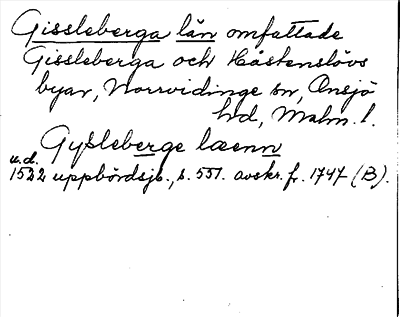 Gissleberga län omfattade
Gissleberga och Hästenslövs
byar, Norrvidinge sn, Onsjö
hd, Malm. l.
Gÿsleberge læenn
u.d.
1522 uppbördsjb., s. 551. avskr. fr. 1747 (B).